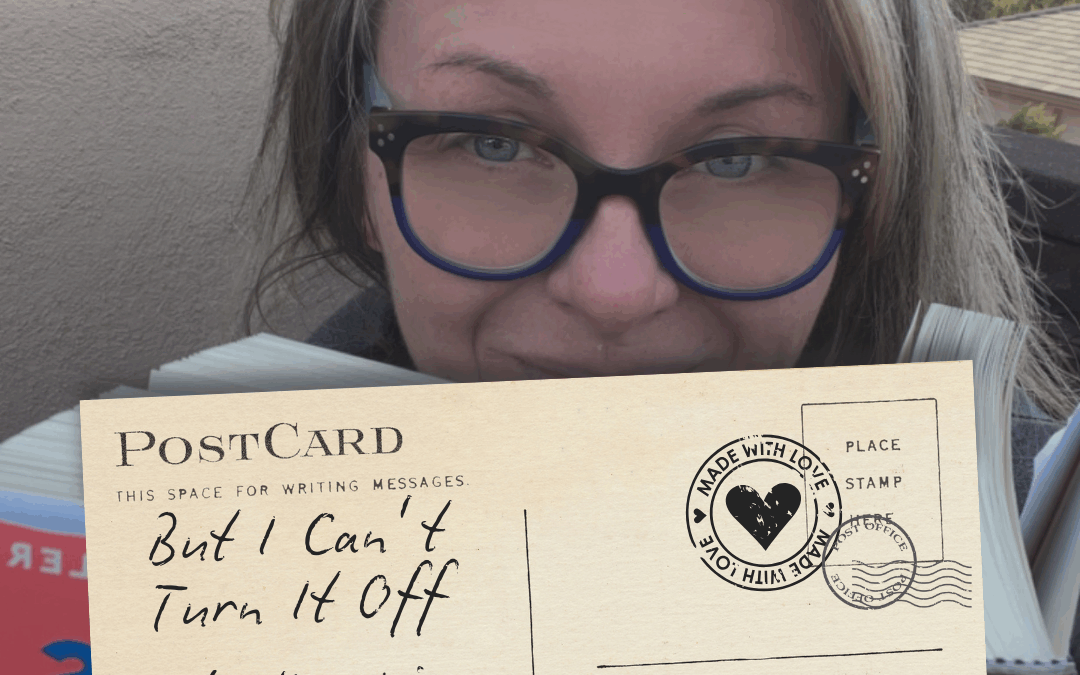 POSTCARD
THIS SPACE FOR WRITING MESSAGES.
But I Can't
Turn It Off
MADE WITH LOVE
MADE WITH LOVE
PLACE
STAMP
HERE
POST OFFICE
POST OFFICE
LER